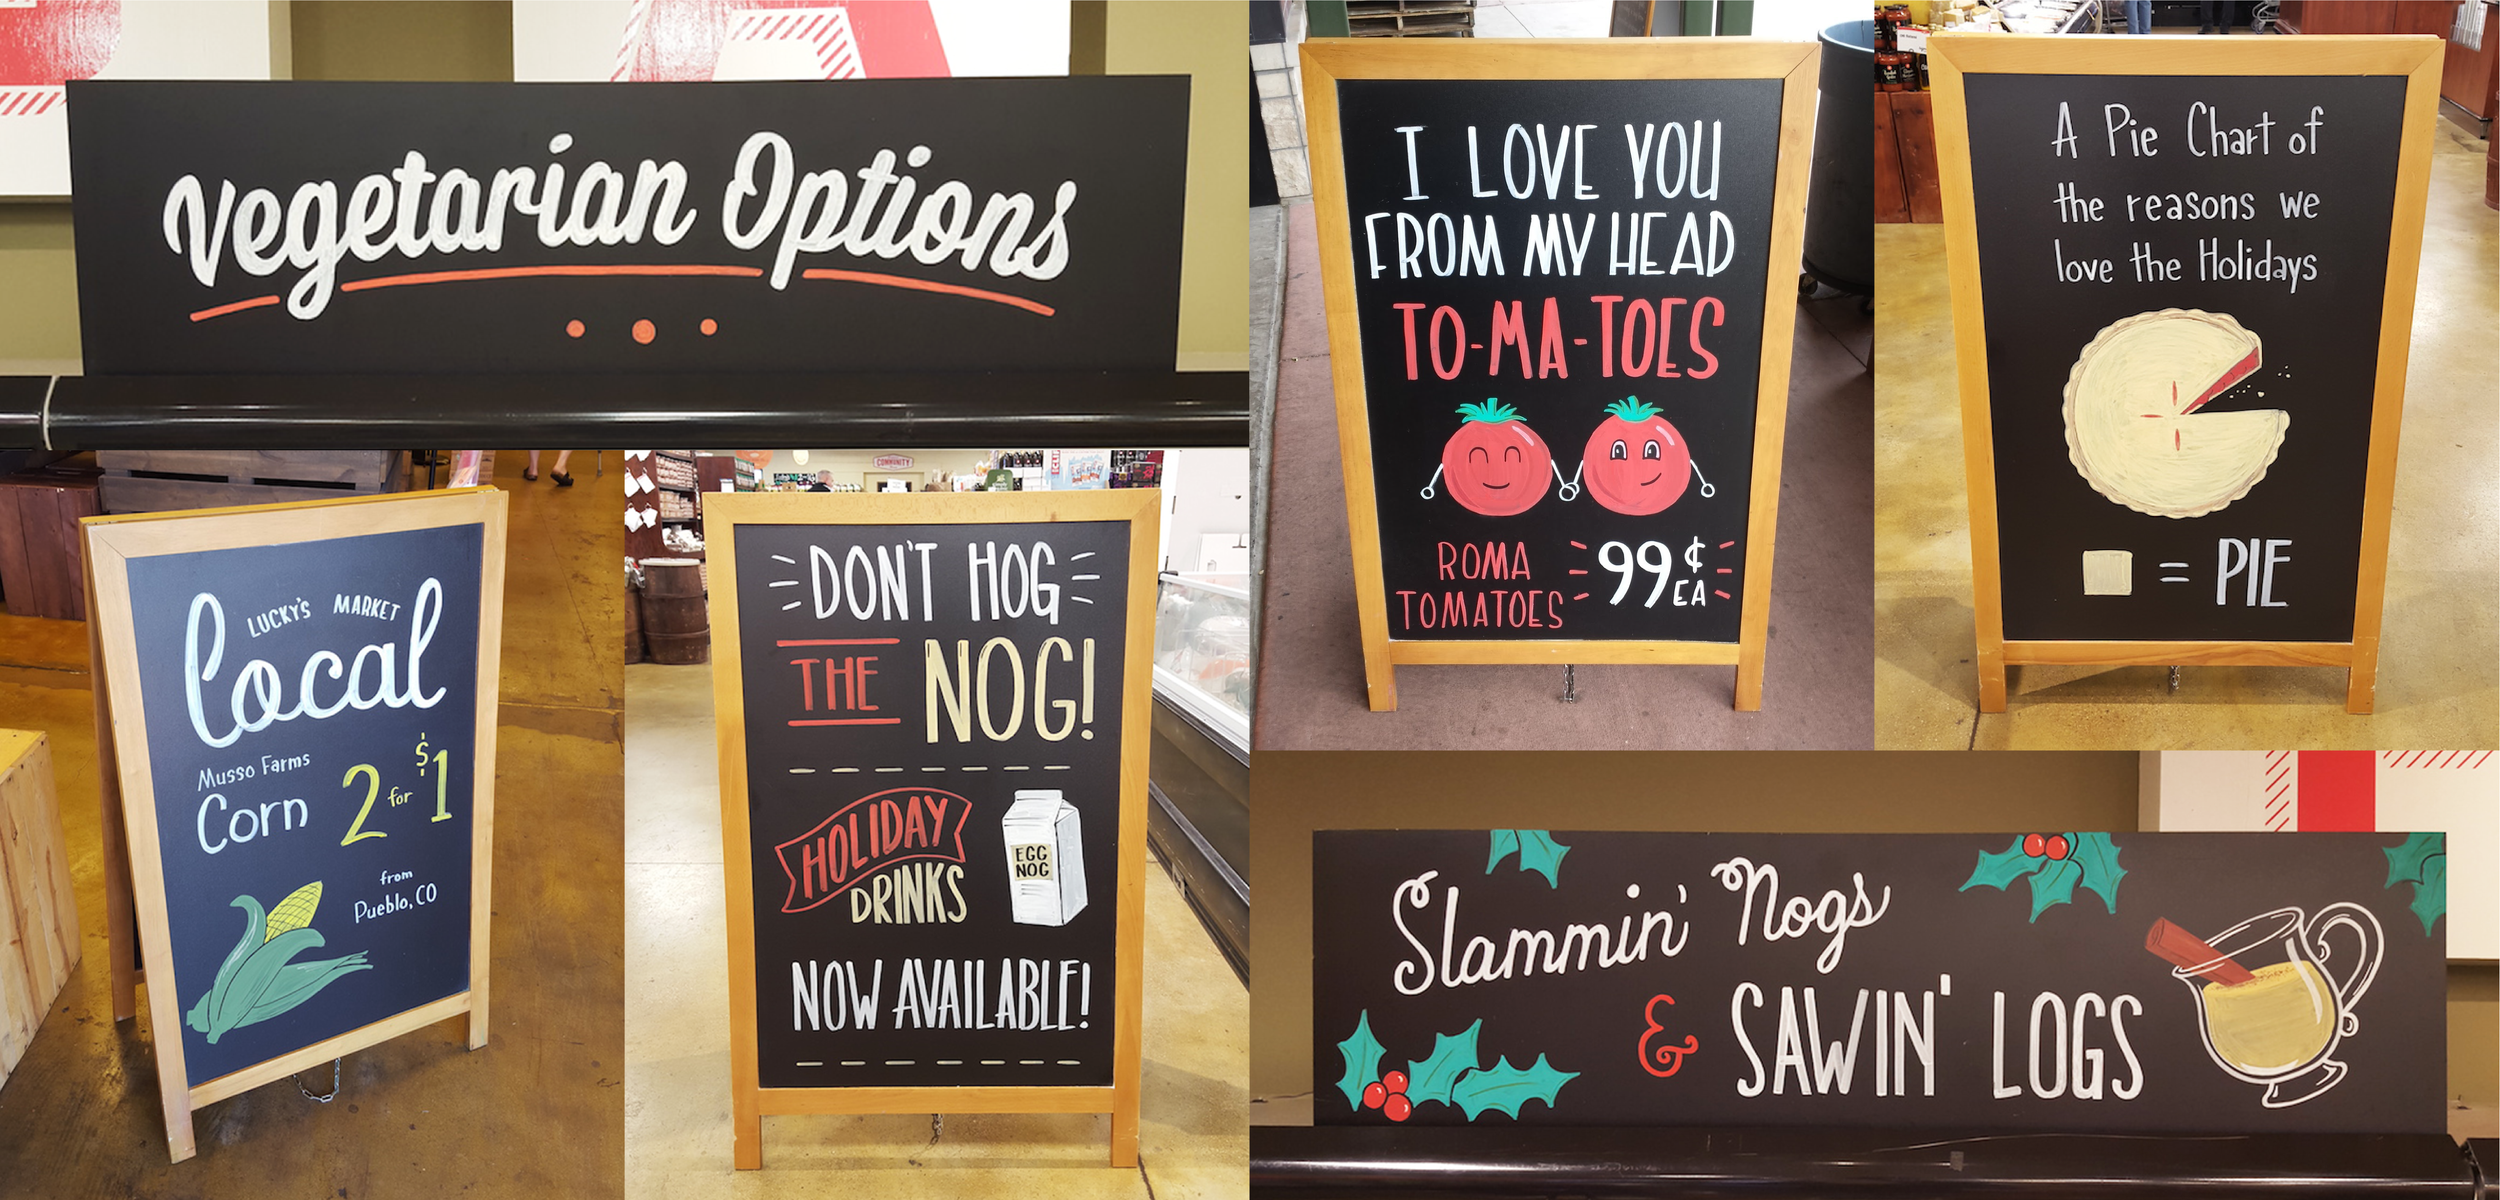 Vegetarian Options
LUCKY'S MARKET
Local
Musso Farms
Corn 2 for $1
from
Pueblo, CO
COMMUNITY
DON'T HOG
THE NOG!
HOLIDAY
DRINKS
EGG
NOG
NOW AVAILABLE!
I LOVE YOU
FROM MY HEAD
TO-MA-TOES
ROMA
TOMATOES
99¢
EA
A Pie Chart of
the reasons we
love the Holidays
= PIE
Slammin' Nogs
& SAWIN' LOGS